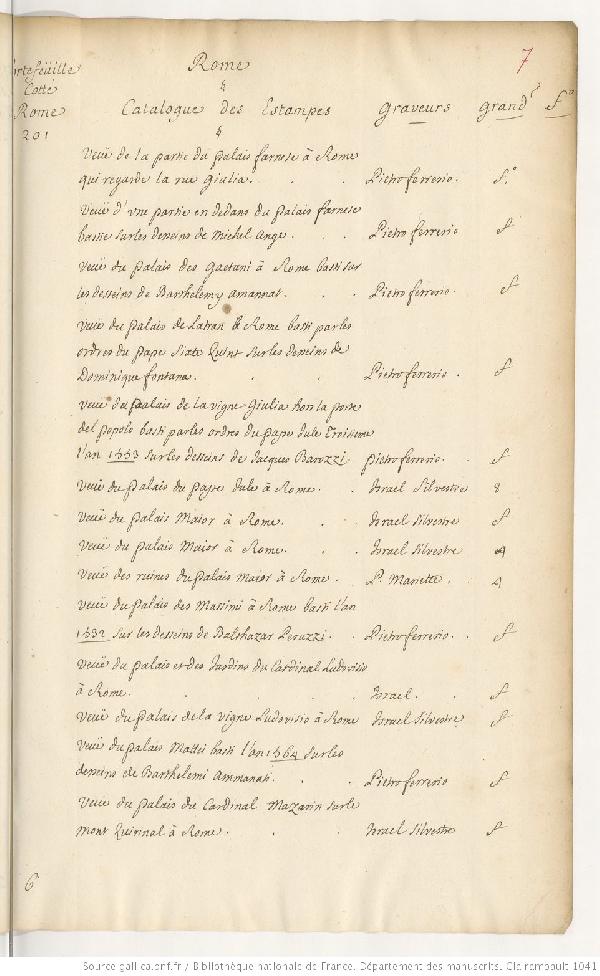 7
Portefeüille Rome
Cotté
Rome Catalogue des Estampes Graveurs grandr fo
201
Veüe de la partie du palais farnese à Rome
qui regarde la rue Giulia. Pietro ferrerio. fo
Veüe d'vne partie en dedans du palais farnese
bastie sur les desseins de Michel Ange. Pietro ferrerio f
Veüe du palais des Gaetani à Rome basti sur
les desseins de Barthelemy amannat. Pietro ferrerio. f
Veüe du palais de Latran à Rome basti par les
ordres du Pape Sixte Quint sur les desseins de
Dominique fontana. Pietro ferrerio. f
Veüe du palais de la vigne Giulia hors la porte
del popolo basti par les ordres du pape Jule Troisieme
l'an 1553 sur les desseins de Jacques Barozzi. pietro ferrerio. f
Veüe du palais du pape Jule à Rome. Israel Silvestre 8
Veüe du palais Maior à Rome. Israel Silvestre f
Veüe du palais Maior à Rome. Israel Silvestre 4
Veüe des ruines du palais Maior à Rome. P. Mariette. 4
Veüe du palais des Massimi à Rome basti l'an
1532 sur les desseins de Balthazar Peruzzi. Pietro ferrerio. f
Veüe du palais et des Jardins du Cardinal Ludovisio
à Rome. Israel. f
Veüe du palais de la vigne Ludovisio à Rome Israel Silvestre f
Veüe du palais Mattei basti l'an 1564 sur les
desseins de Barthelemi Ammanati. Pietro ferrerio f
Veüe du palais du Cardinal Mazarin sur le
mont Quirinal à Rome. Israel Silvestre f
6
Source gallica.bnf.fr / Bibliothèque nationale de France. Département des manuscrits. Clairambault 1041